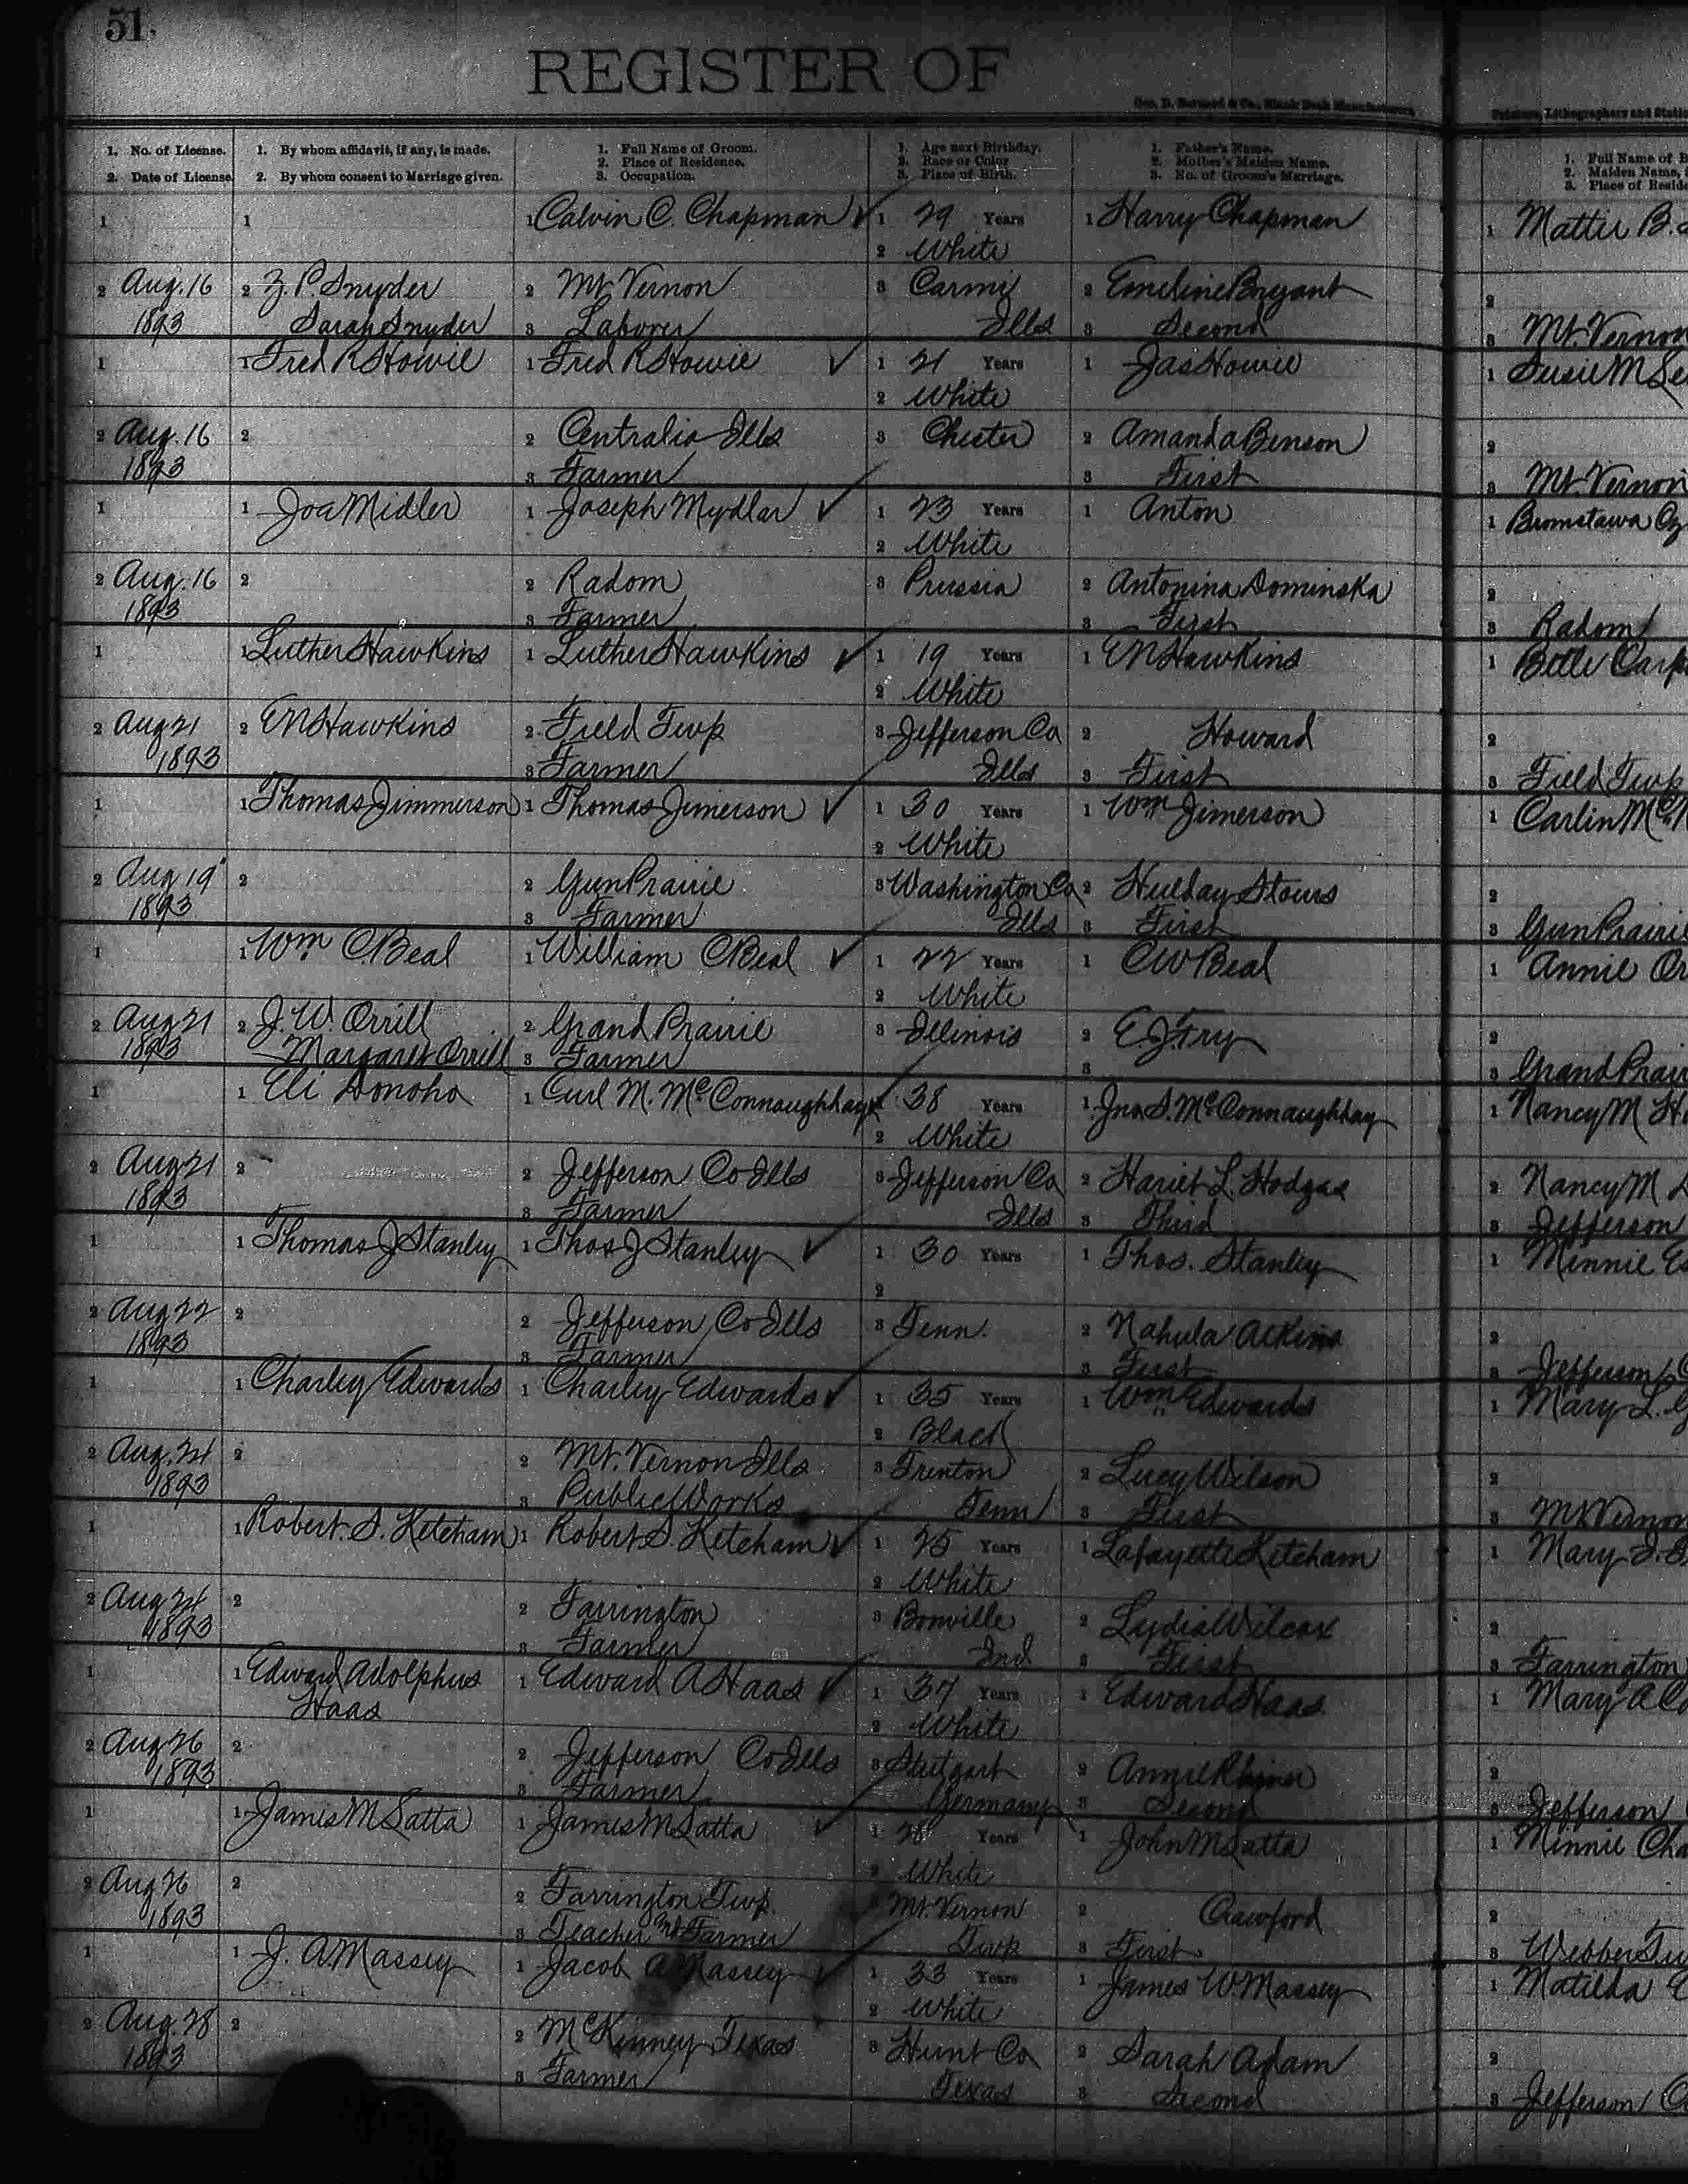 51.
REGISTER OF
Geo. D. Barnard & Co., Blank Book Manufacturers,
Printers, Lithographers and Statio
1. No. of License.
2. Date of License.
1. By whom affidavit, if any, is made.
2. By whom consent to Marriage given.
1. Full Name of Groom.
2. Place of Residence.
3. Occupation.
1. Age next Birthday.
2. Race or Color
3. Place of Birth.
1. Father's Name.
2. Mother's Maiden Name.
3. No. of Groom's Marriage.
1. Full Name of B
2. Maiden Name, i
3. Place of Reside
1 1 1 Calvin C. Chapman ✓ 1 29 Years 1 Harry Chapman 1 Mattie B.
2 White
2 Aug. 16 2 Z. P. Snyder 2 Mt Vernon 3 Carmi 2 Emeline Bryant 2
1893 Sarah Snyder 3 Laborer Ills 3 Second 3 Mt. Vernon
1 1 Fred R Howie 1 Fred R Howie ✓ 1 21 Years 1 Jas Howie 1 Susie M
2 White
2 Aug. 16 2 2 Centralia Ills 3 Chester 2 Amanda Benson 2
1893 3 Farmer 3 First 3 Mt. Vernon
1 1 Joa Midler 1 Joseph Mydlar ✓ 1 23 Years 1 Anton 1 Bronistawa
2 White
2 Aug. 16 2 2 Radom 3 Prussia 2 Antonina Dominska 2
1893 3 Farmer 3 First 3 Radom
1 1 Luther Hawkins 1 Luther Hawkins ✓ 1 19 Years 1 EN Hawkins 1 Belle Carp
2 White
2 Aug 21 2 EN Hawkins 2 Field Twp 3 Jefferson Co 2 Howard 2
1893 3 Farmer Ills 3 First 3 Field Twp
1 1 Thomas Jimmerson 1 Thomas Jimerson ✓ 1 30 Years 1 Wm Jimerson 1 Carlin Mc
2 White
2 Aug 19 2 2 Gun Prairie 3 Washington Co 2 Hulday Stours 2
1893 3 Farmer Ills 3 First 3 Gun Prairie
1 1 Wm C. Beal 1 William C Beal ✓ 1 22 Years 1 CW Beal 1 Annie Or
2 White
2 Aug 21 2 J. W. Orrill 2 Grand Prairie 3 Illinois 2 E. J. Fry 2
1893 Margaret Orrill 3 Farmer 3 3 Grand Prair
1 1 Eli Donoho 1 Curl M. McConnaughhay ✓ 1 38 Years 1 Jno. S. McConnaughhay 1 Nancy M H
2 White
2 Aug 21 2 2 Jefferson Co Ills 3 Jefferson Co 2 Hariet L. Hodges 2 Nancy M
1893 3 Farmer Ills 3 Third 3 Jefferson
1 1 Thomas J Stanley 1 Thos J Stanley ✓ 1 30 Years 1 Thos. Stanley 1 Minnie E
2
2 Aug 22 2 2 Jefferson Co Ills 3 Tenn. 2 Nahula Atkins 2
1893 3 Farmer 3 First 3 Jefferson C
1 1 Charley Edwards 1 Charley Edwards ✓ 1 35 Years 1 Wm Edwards 1 Mary L. G
2 Black
2 Aug. 24 2 2 Mt. Vernon Ills 3 Trenton 2 Lucy Wilson 2
1893 3 Public Works Tenn 3 First 3 Mt Vernon
1 1 Robert. S. Ketcham 1 Robert S. Ketcham ✓ 1 25 Years 1 Lafayette Ketcham 1 Mary J.
2 White
2 Aug 24 2 2 Farrington 3 Bonville 2 Lydia Wilcox 2
1893 3 Farmer Ind 3 First 3 Farrington
1 1 Edward Adolphus 1 Edward A Haas ✓ 1 37 Years 1 Edward Haas 1 Mary A Co
Haas 2 White
2 Aug 26 2 2 Jefferson Co Ills 3 Stutgart 2 Annie 2
1893 3 Farmer Germany 3 Second 3 Jefferson
1 1 James M Satta 1 James M Satta ✓ 1 28 Years 1 John M Satta 1 Minnie Cha
2 White
2 Aug 26 2 2 Farrington Twp. 3 Mt. Vernon 2 Crawford 2
1893 3 Teacher nd Farmer Twp 3 First 3 Webber Tw
1 1 J. A Massey 1 Jacob A Massey ✓ 1 33 Years 1 James W. Massey 1 Matilda
2 White
2 Aug. 28 2 2 McKinney Texas 3 Hunt Co 2 Sarah Adam 2
1893 3 Farmer Texas 3 Second 3 Jefferson C